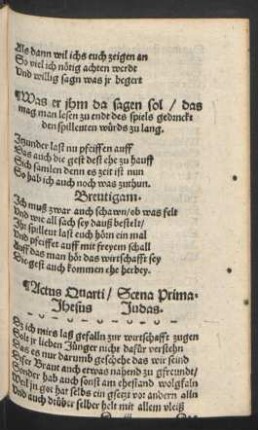 Als dann wil ichs euch zeigen an
So viel ich nötig achten werde
Und willig sagn was jr begert
¶Was er jhm da sagen sol / das
mag man lesen zu ende des spiels gedruckt
den spilleuten würds zu lang.
Itzunder last nu pfeiffen auff
Das auch die gest dest ehe zu hauff
Sich samlen denn es zeit ist nun
So hab ich auch noch was zuthun.
Breutigam.
Ich muß zwar auch schawn / ob was felt
Und wie all sach sey dauß bestelt /
Ihr spilleut last euch hörn ein mal
Und pfeiffet auff mit freyem schall
Auff das man hör das wirtschafft sey
Die gest auch kommen ehe herbey.
¶Actus Quarti / Scena Prima.
Ihesus Judas.
Si ich mirs laß gefalln zur wirtschafft zugen
Solt jr lieben Jünger nicht dafür verstehn
Das es nur darumb geschehe das wir seind
Dieser Braut auch etwas nahend zu gfreundt /
Sonder hab auch sonst am ehstand wolgfaln
Weil jn got hat selbs ein gsetzt vor andern alln
Und auch drüber selber helt mit allem vleiß